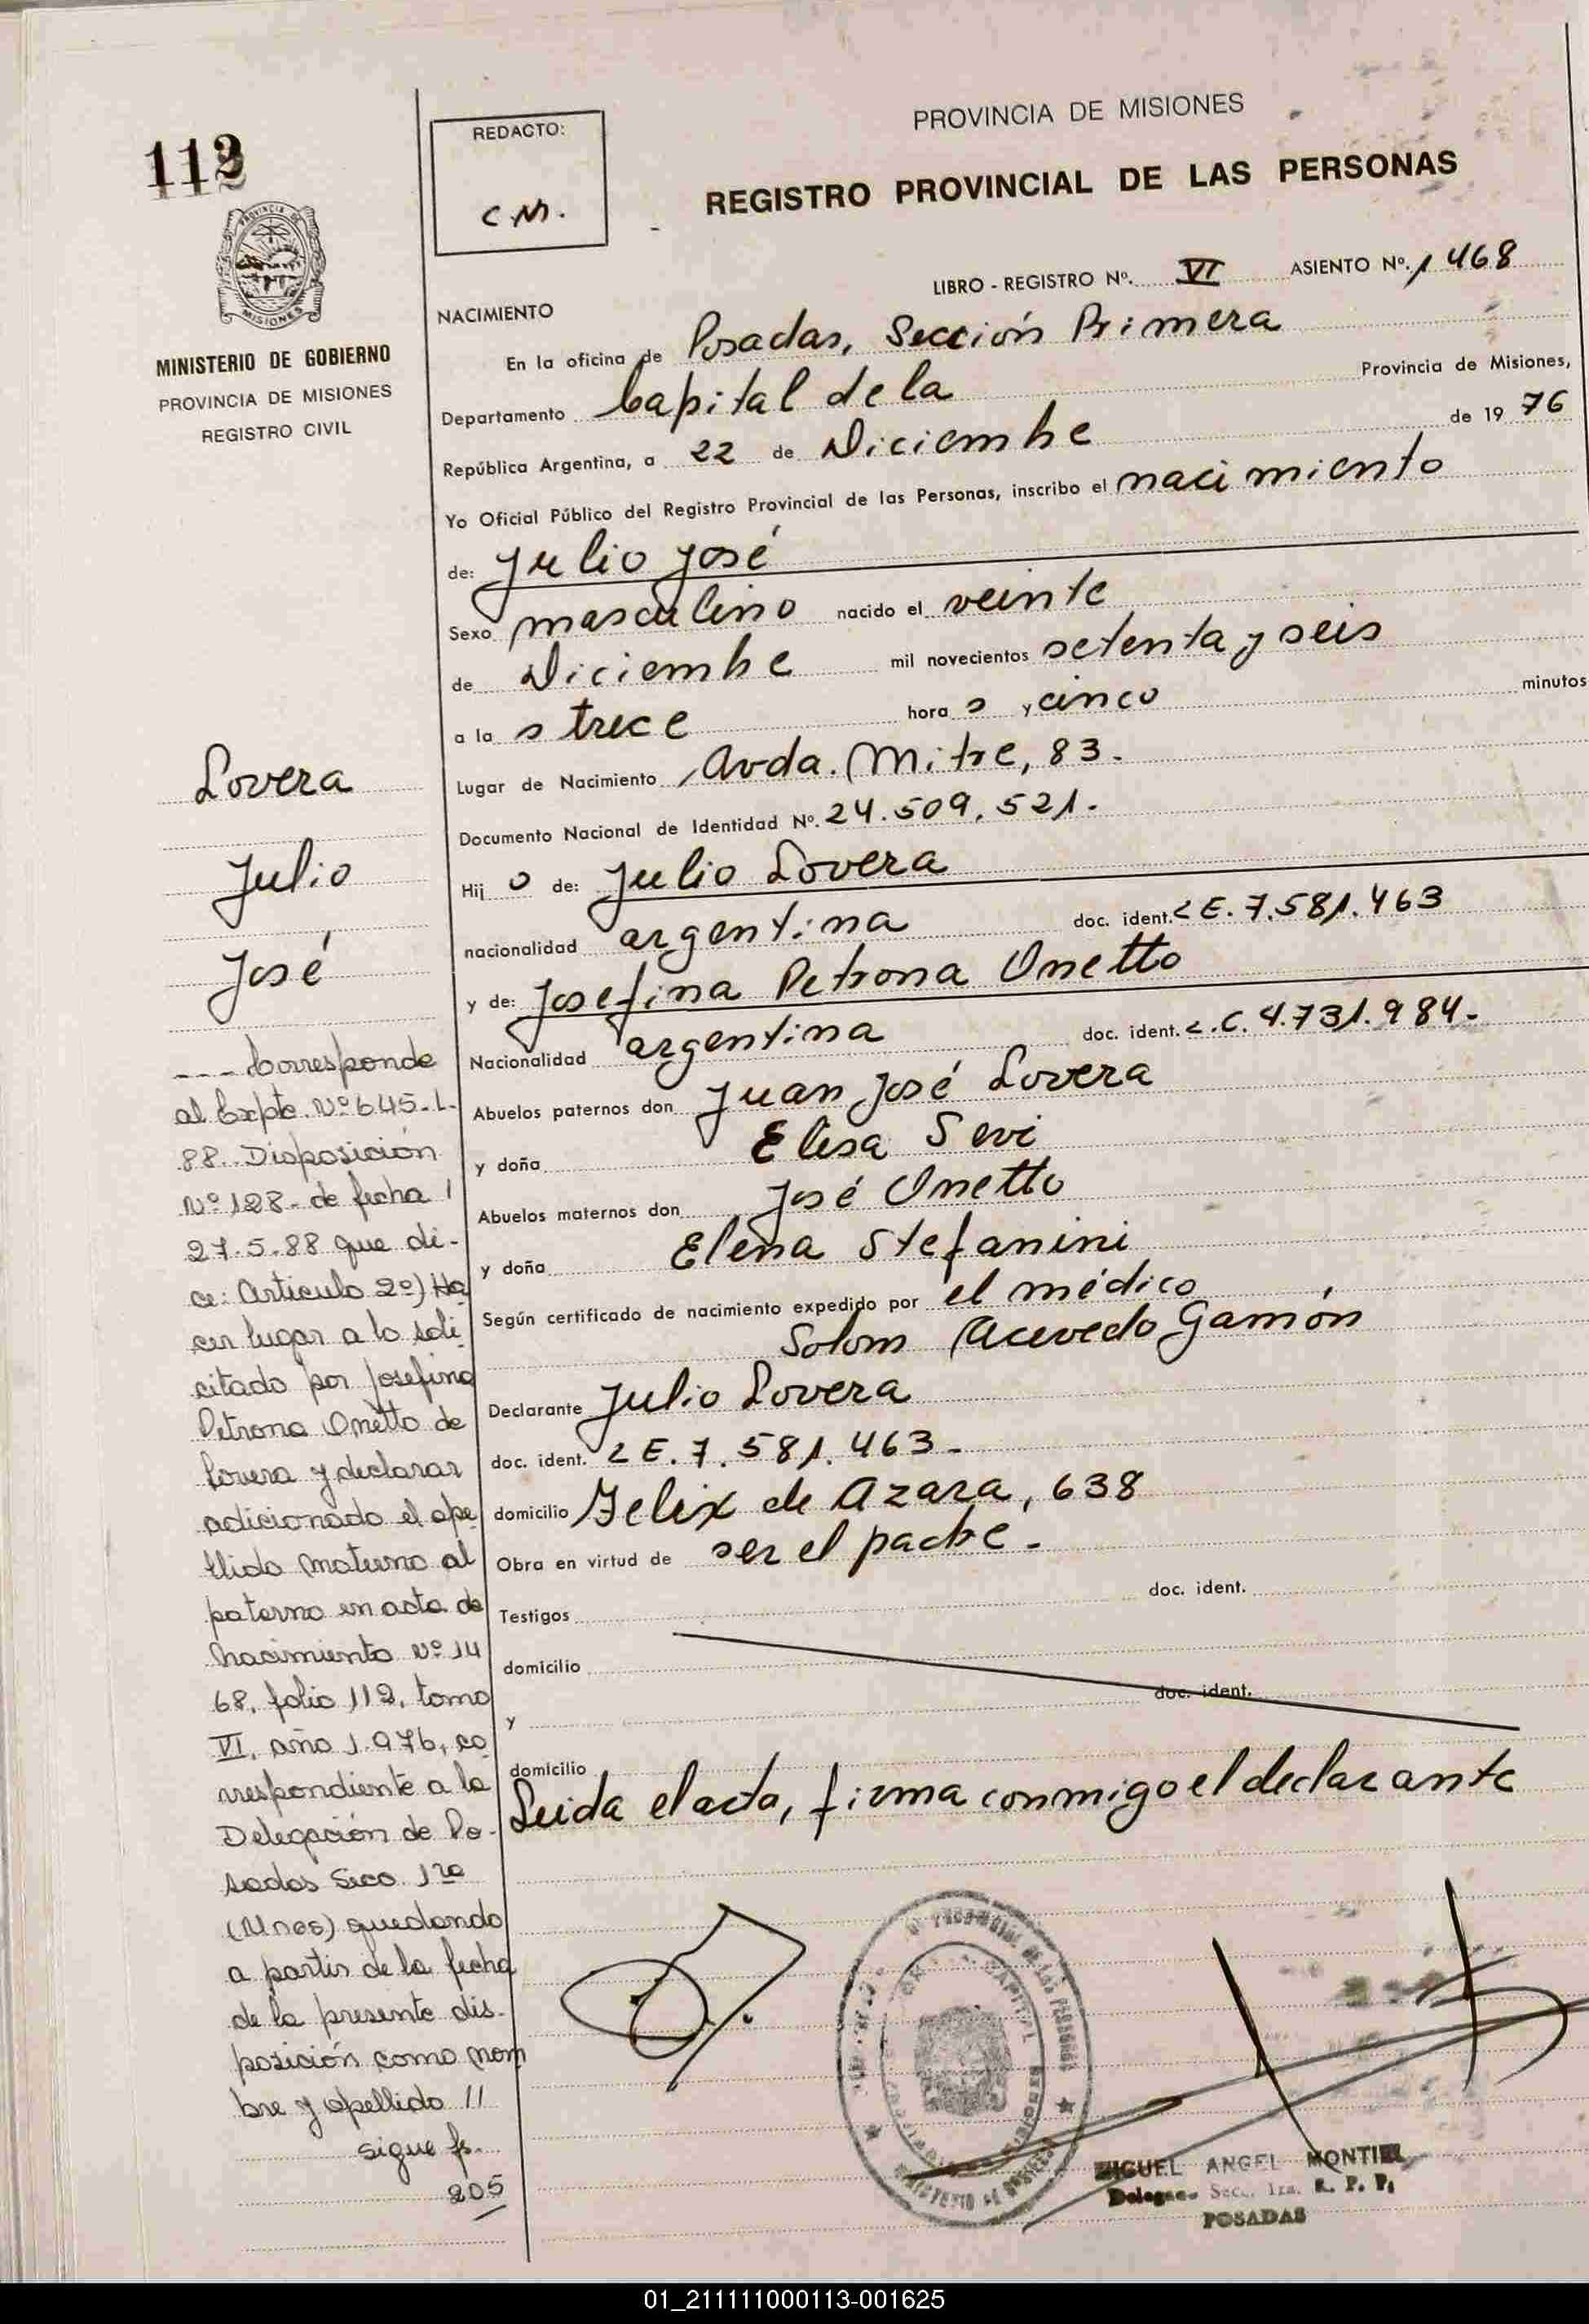 112
REDACTO:
C.M.
PROVINCIA DE MISIONES
REGISTRO PROVINCIAL DE LAS PERSONAS
MINISTERIO DE GOBIERNO
PROVINCIA DE MISIONES
REGISTRO CIVIL
LIBRO - REGISTRO Nº. VI ASIENTO Nº. 1468
NACIMIENTO
En la oficina de Posadas, Sección Primera
Departamento Capital de la Provincia de Misiones,
República Argentina, a 22 de Diciembre de 19 76
Yo Oficial Público del Registro Provincial de las Personas, inscribo el nacimiento
de: Julio José
Sexo masculino nacido el veinte
de Diciembre mil novecientos setenta y seis
a la s trece hora s y cinco minutos
Lugar de Nacimiento Avda. Mitre, 83.-
Documento Nacional de Identidad Nº. 24.509.521.-
Hij o de: Julio Lovera
nacionalidad argentina doc. ident. LE. 7.581.463
y de: Josefina Petrona Onetto
Nacionalidad argentina doc. ident. L.C. 4.731.984.-
Abuelos paternos don Juan José Lovera
y doña Elisa Sevi
Abuelos maternos don José Onetto
y doña Elena Stefanini
Según certificado de nacimiento expedido por el médico
Solom Acevedo Gamón
Declarante Julio Lovera
doc. ident. LE. 7.581.463.-
domicilio Felix de Azara, 638
Obra en virtud de ser el padre.-
Testigos doc. ident.
domicilio
y doc. ident.
domicilio
Leida el acta, firma conmigo el declarante
Lovera
Julio
José
---Corresponde
al Expte. Nº 645-L-
88. Disposición
Nº 128- de fecha
27.5.88 que di-
ce: Articulo 2º) Ha
cer lugar a lo soli
citado por Josefina
Petrona Onetto de
Lovera y declarar
adicionado el ape
llido materno al
paterno en acta de
nacimiento Nº 14
68, folio 112, tomo
VI, año 1.976, co
rrespondiente a la
Delegación de Po-
sadas Secc. 1ra
(Mnes) quedando
a partir de la fecha
de la presente dis-
posición como nom
bre y apellido //
sigue fs.
205
MIGUEL ANGEL MONTIEL
Delegado Secc. 1ra. R. P. P.
POSADAS
01_211111000113-001625